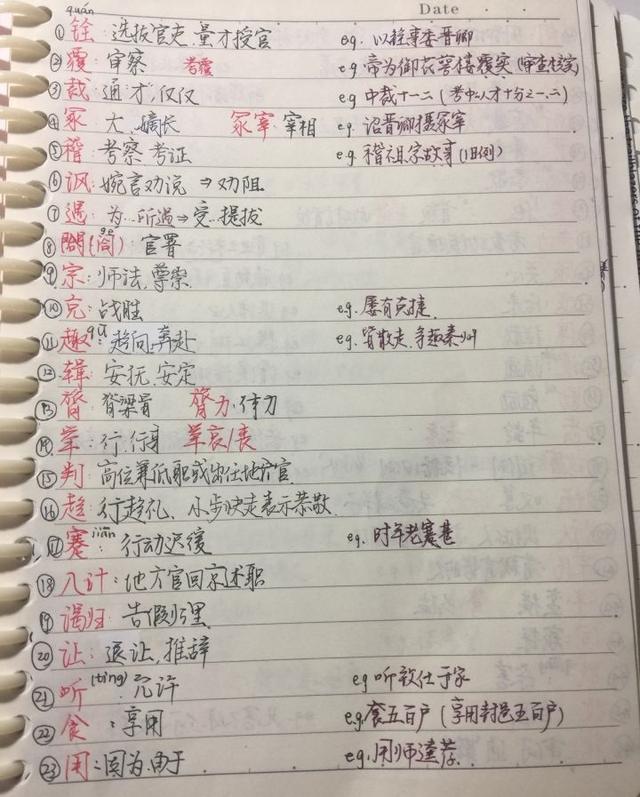 Date
quán
① 铨: 选拔官吏, 量才授官 eg. 以铨事委晋卿
② 覆 审察 考覆 eg 帝为御衣覆实 (审查核实)
③ 裁 通"才", 仅仅 eg 中裁十一二 (考中人才十分之一、二)
④ 冢 大、嫡长 冢宰 宰相 eg. 诏晋卿摄冢宰
⑤ 稽: 考察 考证 eg. 稽祖宗故事 (旧例)
⑥ 讽: 婉言劝说 → 劝阻
⑦ 遇: 为…所遇 → 受…提拔
⑧ 閤 (阁) 官署
⑨ 宗: 师法, 尊崇
⑩ 克: 战胜 eg. 屡有克捷
⑪ 趣: 趋向, 奔赴 eg. 皆散走, 争趣秦州
⑫ 辑: 安抚, 安定
⑬ 膂: 脊梁骨 膂力: 体力
⑭ 举: 行, 行身 举哀/丧
⑮ 判: 高位兼低职或出任地方官
⑯ 趋: 行趋礼、小步快走表示恭敬
⑰ 蹇 jiǎn: 行动迟缓 eg. 时年老蹇甚
⑱ 入计: 地方官回京述职
⑲ 谒归: 告假归里
⑳ 让: 退让, 推辞
㉑ 听 (tìng) : 允许 eg 听致仕于家
㉒ 食 : 享用 eg. 食五百户 (享用封邑五百户)
㉓ 用: 因为, 由于 eg. 用师逵荐